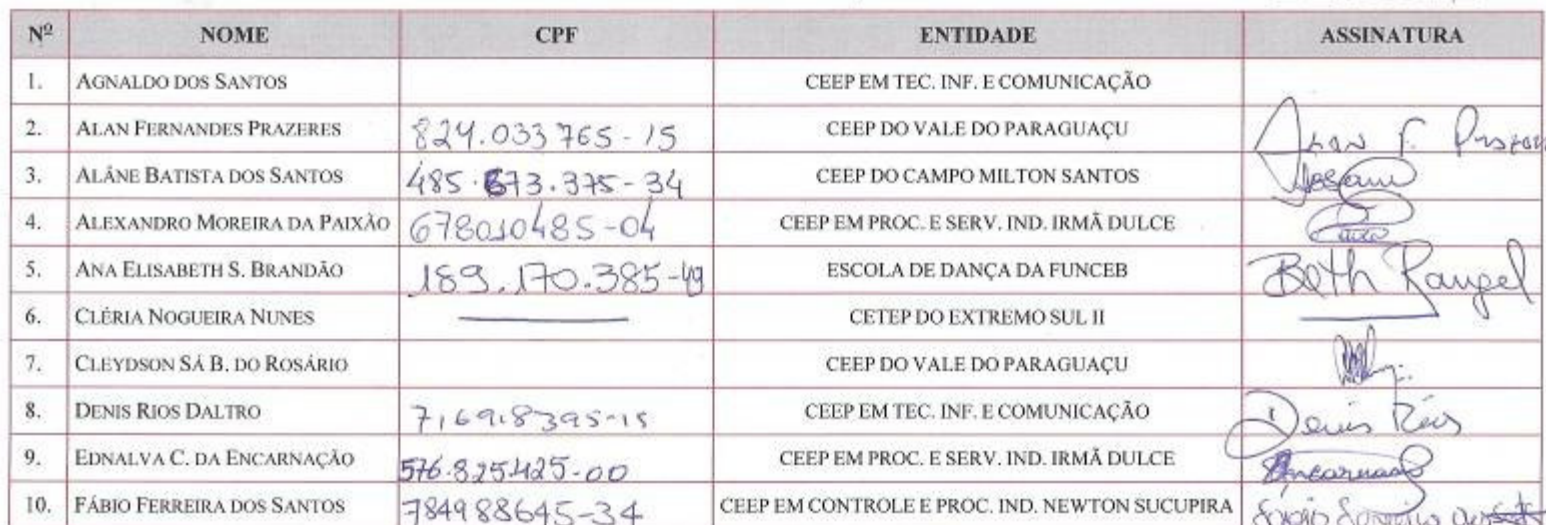 Nº NOME CPF ENTIDADE ASSINATURA
1. AGNALDO DOS SANTOS CEEP EM TEC. INF. E COMUNICAÇÃO
2. ALAN FERNANDES PRAZERES 824.033765-15 CEEP DO VALE DO PARAGUAÇU Alan F.
3. ALÂNE BATISTA DOS SANTOS 485.673.375-34 CEEP DO CAMPO MILTON SANTOS
4. ALEXANDRO MOREIRA DA PAIXÃO 678010485-04 CEEP EM PROC. E SERV. IND. IRMÃ DULCE
5. ANA ELISABETH S. BRANDÃO 189.170.385-49 ESCOLA DE DANÇA DA FUNCEB Beth Rangel
6. CLÉRIA NOGUEIRA NUNES CETEP DO EXTREMO SUL II
7. CLEYDSON SÁ B. DO ROSÁRIO CEEP DO VALE DO PARAGUAÇU
8. DENIS RIOS DALTRO CEEP EM TEC. INF. E COMUNICAÇÃO Denis Rios
9. EDNALVA C. DA ENCARNAÇÃO 576.825.425-00 CEEP EM PROC. E SERV. IND. IRMÃ DULCE Encarnação
10. FÁBIO FERREIRA DOS SANTOS 784988645-34 CEEP EM CONTROLE E PROC. IND. NEWTON SUCUPIRA